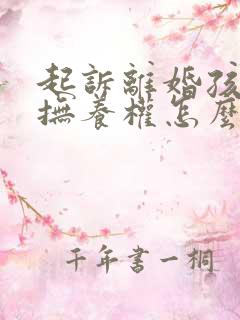 起訴離婚孩
撫養權怎麼
千年書一桐